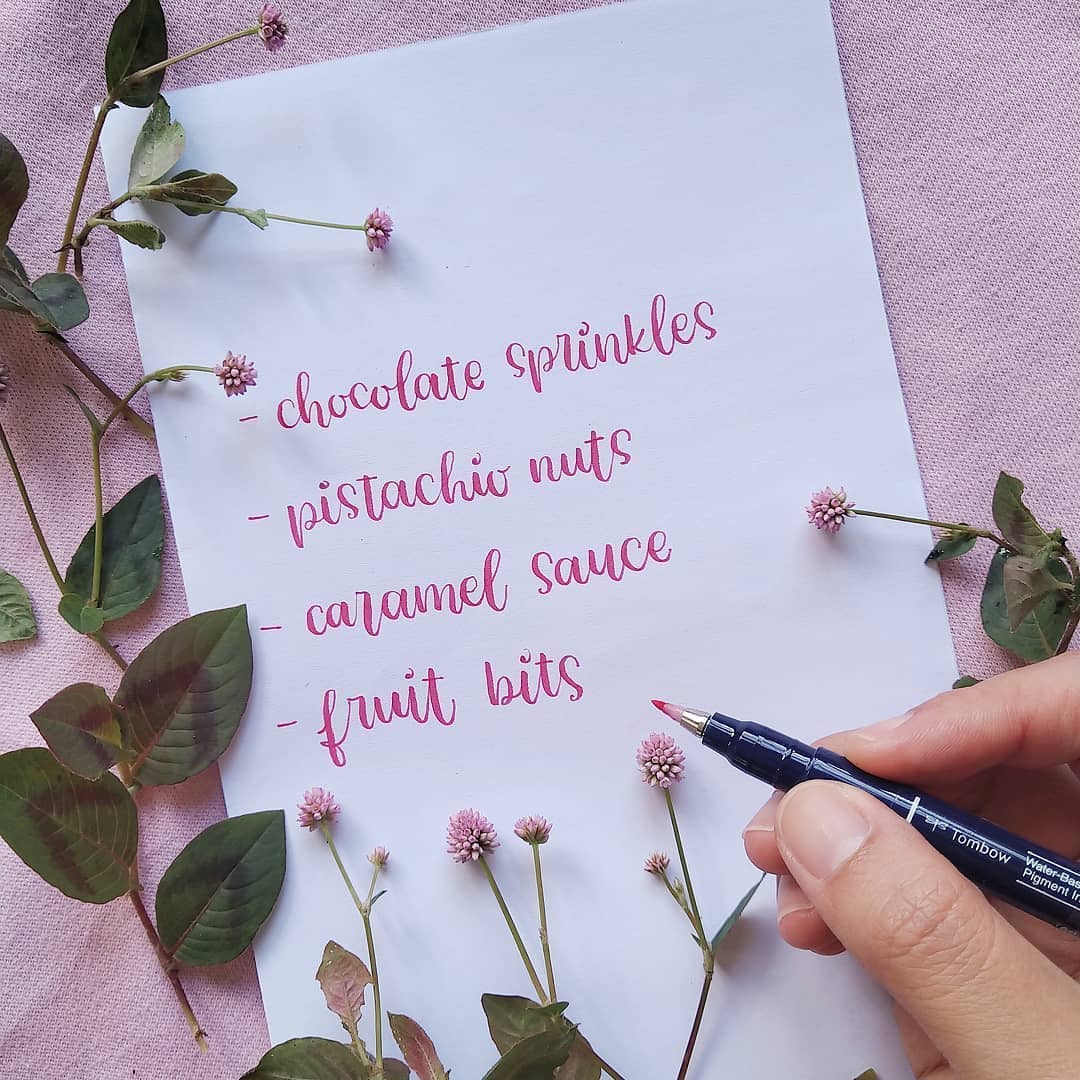 - chocolate sprinkles
- pistachio nuts
- caramel sauce
- fruit bits
Tombow
Water-Bas
Pigment In